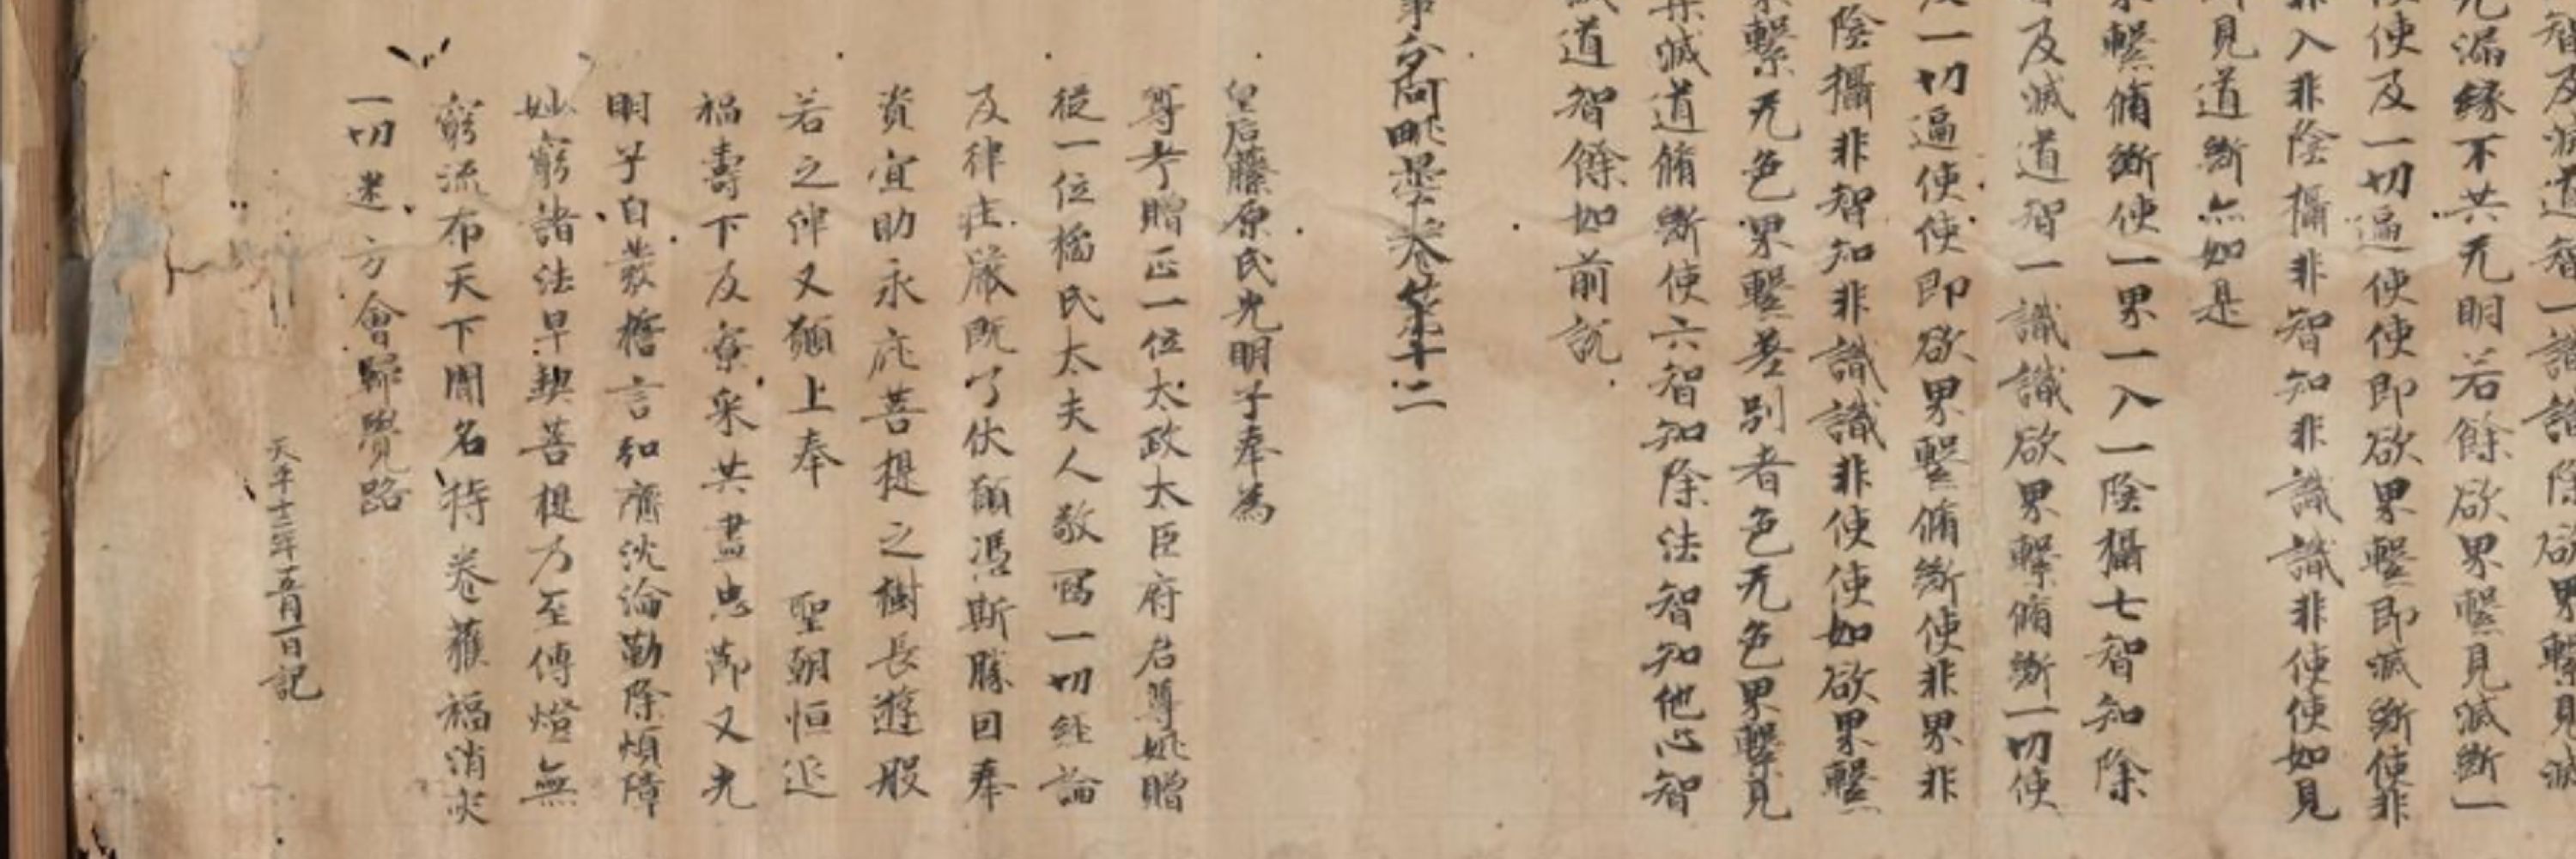 智及滅道智一識識除欲界繫見滅
无漏緣不共无明若餘欲界繫見滅斷一
使及一切遍使使即欲界繫即滅斷使非
非入非陰攝非智知非識識非使使如見
見道斷亦如是
繫脩斷使一界一入一陰攝七智知除
及滅道智一識識欲界繫脩斷一切使
一切遍使使即欲界繫脩斷使非界非
陰攝非智知非識識非使使如欲界繫
繫无色界繫差別者色无色界繫見
滅道脩斷使六智知除法智知他心智
道智餘如前說
事分阿毗曇卷第十二
皇后藤原氏光明子奉為
尊考贈正一位太政太臣府君尊妣贈
從一位橘氏太夫人敬寫一切經論
及律莊嚴既了伏願憑斯勝因奉
資冥助永庇菩提之樹長遊般
若之津又願上奉 聖朝恒延
福壽下及寮采共盡忠節又光
明子自發誓言弘濟沈淪勤除煩障
妙窮諸法早契菩提乃至傳燈無
窮流布天下聞名持卷獲福消灾
一切迷方會歸覺路
天平十二年五月一日記